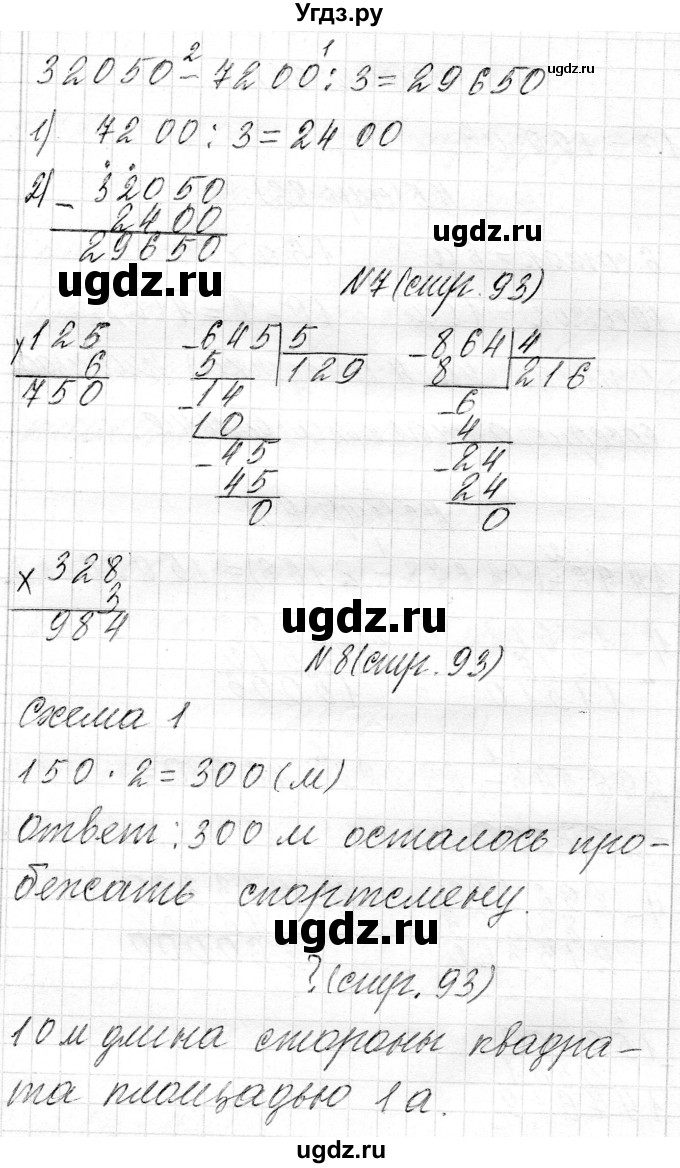 Угдз.ру
32050 - 7200 : 3 = 29650
2 1
ugdz.ru
1) 7200 : 3 = 2400
2) - 32050
2400
29650
ugdz.ru
ugdz.ru
№7 (стр. 93)
× 125
6
750
- 645 | 5
5 129
- 14
10
- 45
45
0
- 864 | 4
8 216
- 6
4
- 24
24
0
× 328
3
984
ugdz.ru
№8 (стр. 93)
Схема 1
150 · 2 = 300 (м)
ответ: 300 м осталось про-
бежать спортсмену.
ugdz.ru
? (стр. 93)
10 м длина стороны квадра-
та площадью 1 а.
ugdz.ru